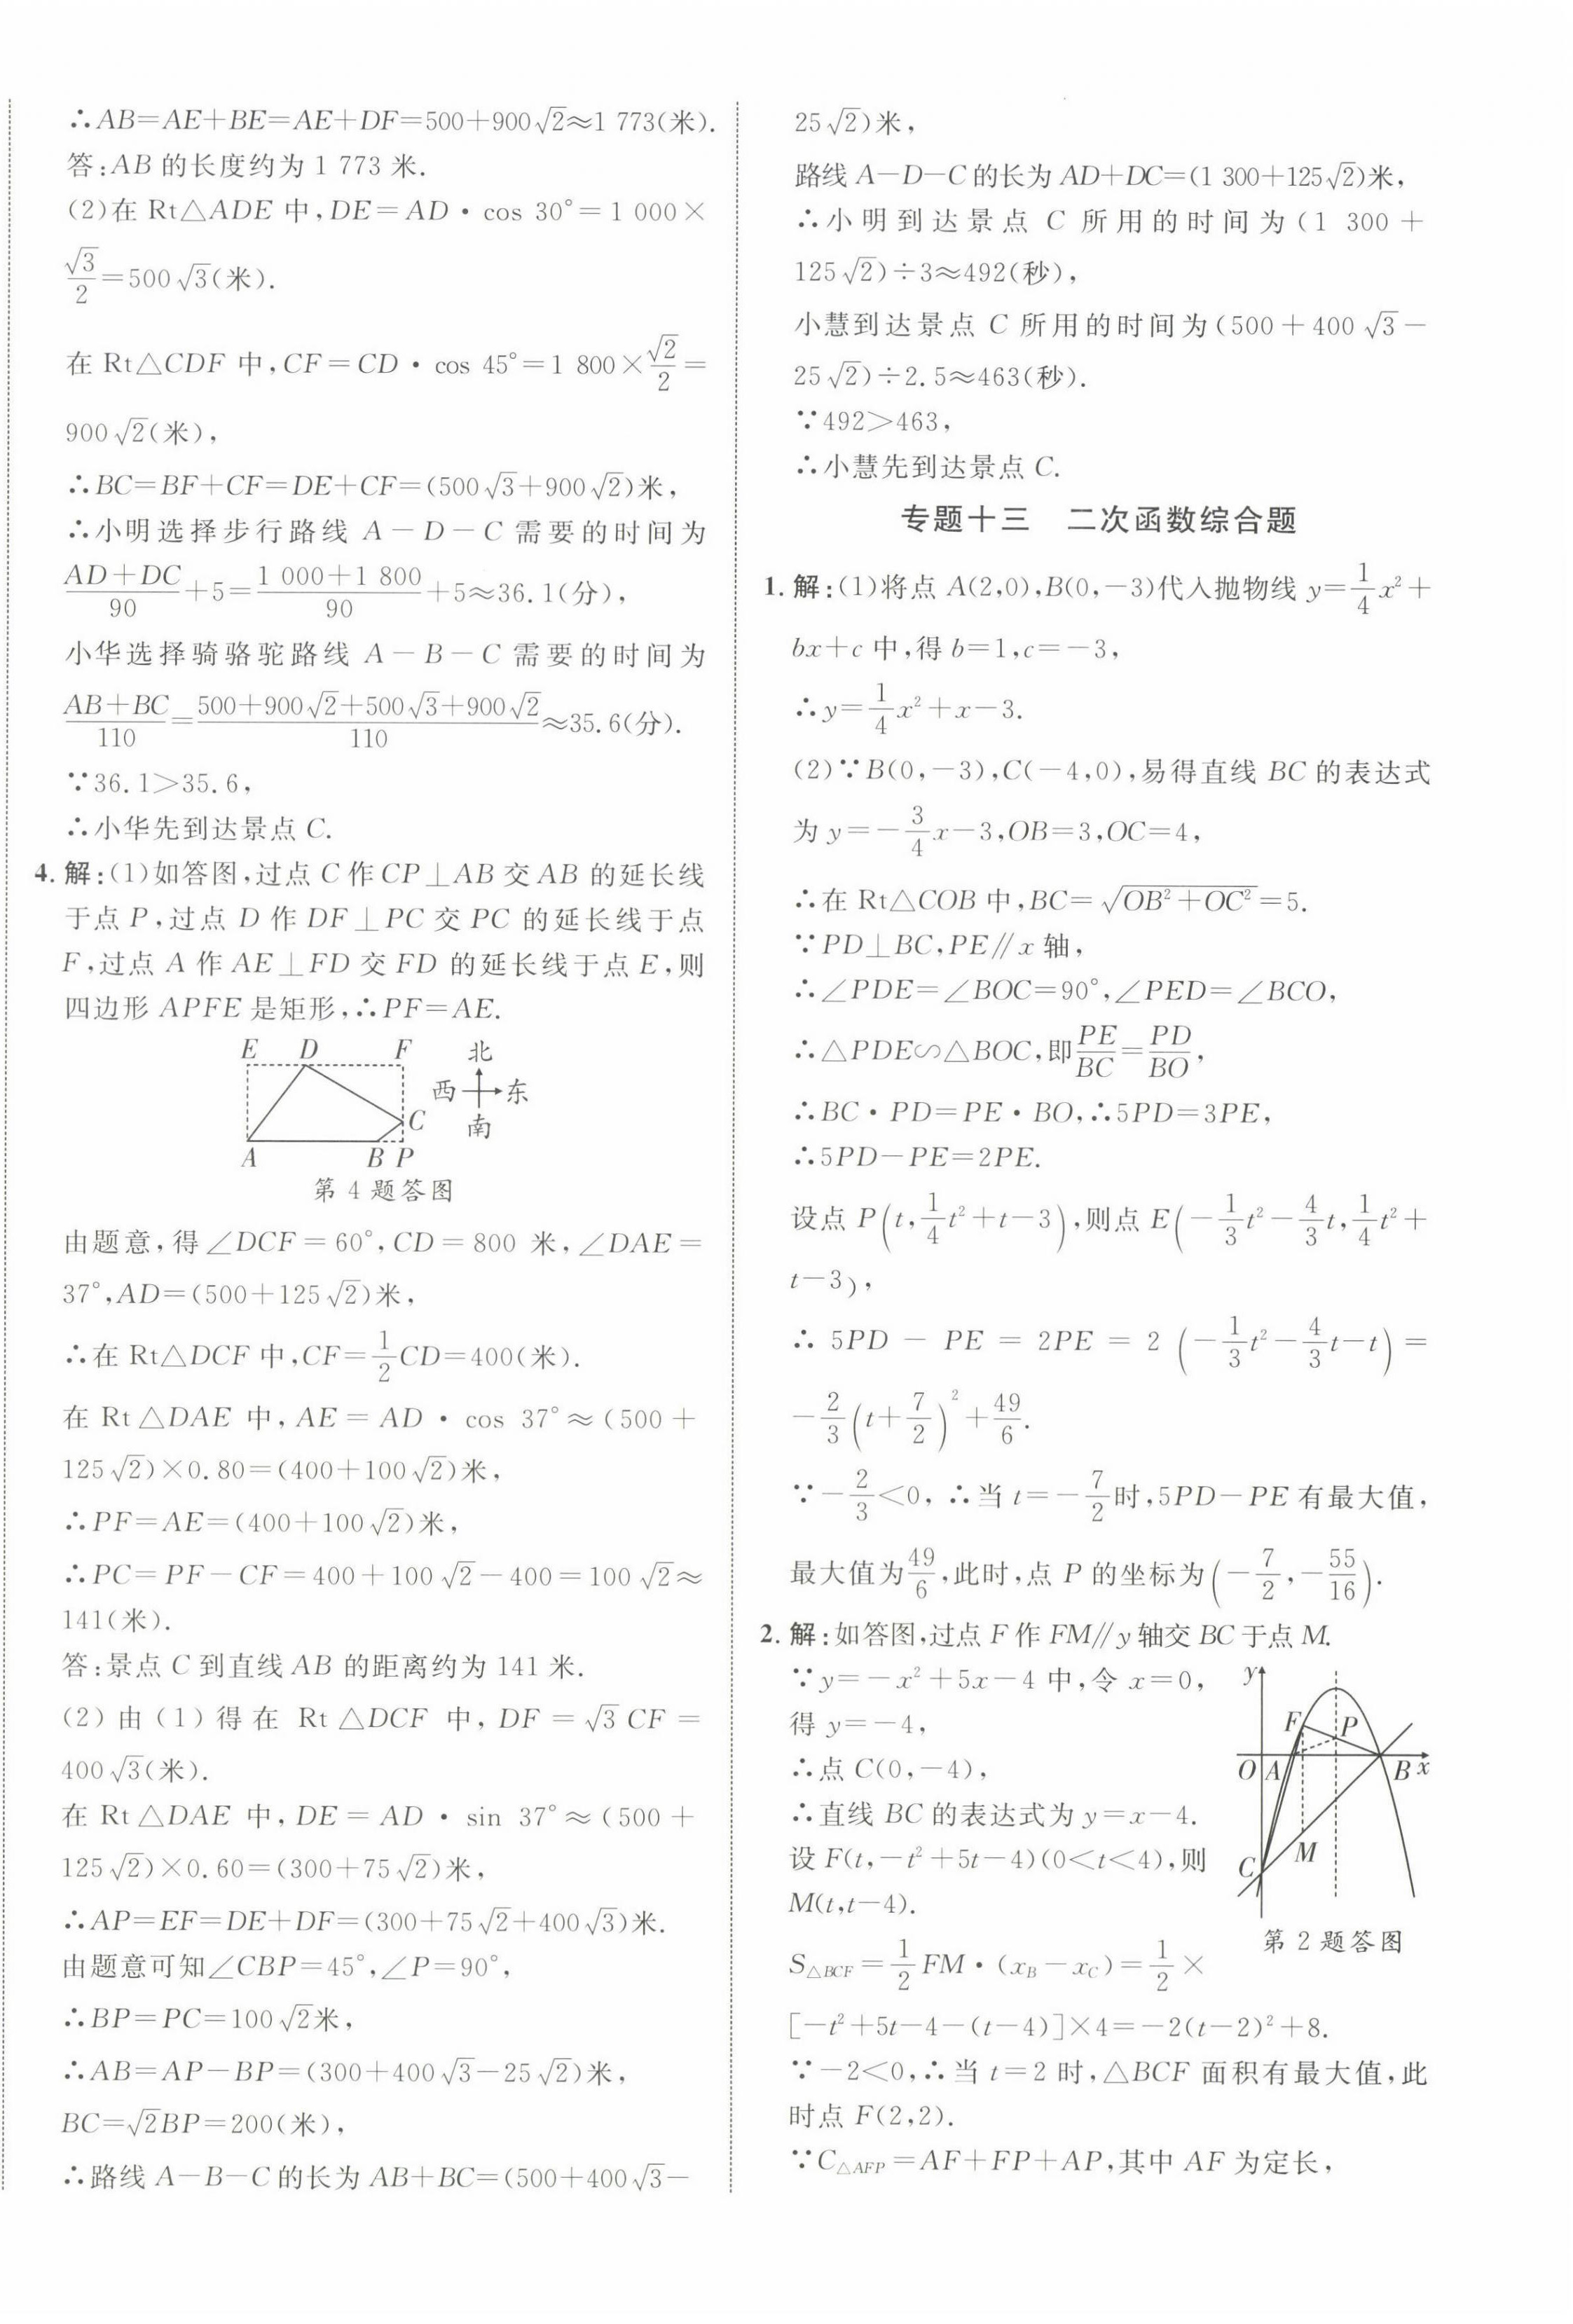 ∴AB=AE+BE=AE+DF=500+900√2≈1 773(米).
答:AB 的长度约为 1 773 米.
(2)在 Rt△ADE 中,DE=AD·cos 30°=1 000×
√3/2=500√3(米).
在 Rt△CDF 中,CF=CD·cos 45°=1 800×√2/2=
900√2(米),
∴BC=BF+CF=DE+CF=(500√3+900√2)米,
∴小明选择步行路线 A-D-C 需要的时间为
(AD+DC)/90+5=(1 000+1 800)/90+5≈36.1(分),
小华选择骑骆驼路线 A-B-C 需要的时间为
(AB+BC)/110=(500+900√2+500√3+900√2)/110≈35.6(分).
∵36.1>35.6,
∴小华先到达景点 C.
4.解:(1)如答图,过点 C 作 CP⊥AB 交 AB 的延长线
于点 P,过点 D 作 DF⊥PC 交 PC 的延长线于点
F,过点 A 作 AE⊥FD 交 FD 的延长线于点 E,则
四边形 APFE 是矩形,∴PF=AE.
E D F 北
西 东
C 南
A B P
第 4 题答图
由题意,得∠DCF=60°,CD=800 米,∠DAE=
37°,AD=(500+125√2)米,
∴在 Rt△DCF 中,CF=1/2CD=400(米).
在 Rt△DAE 中,AE=AD·cos 37°≈(500+
125√2)×0.80=(400+100√2)米,
∴PF=AE=(400+100√2)米,
∴PC=PF-CF=400+100√2-400=100√2≈
141(米).
答:景点 C 到直线 AB 的距离约为 141 米.
(2)由(1)得在 Rt△DCF 中,DF=√3CF=
400√3(米).
在 Rt△DAE 中,DE=AD·sin 37°≈(500+
125√2)×0.60=(300+75√2)米,
∴AP=EF=DE+DF=(300+75√2+400√3)米.
由题意可知∠CBP=45°,∠P=90°,
∴BP=PC=100√2米,
∴AB=AP-BP=(300+400√3-25√2)米,
BC=√2BP=200(米),
∴路线 A-B-C 的长为 AB+BC=(500+400√3-
25√2)米,
路线 A-D-C 的长为 AD+DC=(1 300+125√2)米,
∴小明到达景点 C 所用的时间为(1 300+
125√2)÷3≈492(秒),
小慧到达景点 C 所用的时间为(500+400√3-
25√2)÷2.5≈463(秒).
∵492>463,
∴小慧先到达景点 C.
专题十三 二次函数综合题
1.解:(1)将点 A(2,0),B(0,-3)代入抛物线 y=1/4x²+
bx+c 中,得 b=1,c=-3,
∴y=1/4x²+x-3.
(2)∵B(0,-3),C(-4,0),易得直线 BC 的表达式
为 y=-3/4x-3,OB=3,OC=4,
∴在 Rt△COB 中,BC=√(OB²+OC²)=5.
∵PD⊥BC,PE∥x 轴,
∴∠PDE=∠BOC=90°,∠PED=∠BCO,
∴△PDE∽△BOC,即PE/BC=PD/BO,
∴BC·PD=PE·BO,∴5PD=3PE,
∴5PD-PE=2PE.
设点 P(t,1/4t²+t-3),则点 E(-1/3t²-4/3t,1/4t²+
t-3),
∴5PD-PE=2PE=2(-1/3t²-4/3t-t)=
-2/3(t+7/2)²+49/6.
∵-2/3<0,∴当 t=-7/2时,5PD-PE 有最大值,
最大值为49/6,此时,点 P 的坐标为(-7/2,-55/16).
2.解:如答图,过点 F 作 FM∥y 轴交 BC 于点 M.
∵y=-x²+5x-4 中,令 x=0,
得 y=-4,
∴点 C(0,-4),
∴直线 BC 的表达式为 y=x-4.
设 F(t,-t²+5t-4)(0<t<4),则
M(t,t-4).
y
F P
O A B x
M
C
第 2 题答图
S△BCF=1/2FM·(xB-xC)=1/2×
[-t²+5t-4-(t-4)]×4=-2(t-2)²+8.
∵-2<0,∴当 t=2 时,△BCF 面积有最大值,此
时点 F(2,2).
∵C△AFP=AF+FP+AP,其中 AF 为定长,